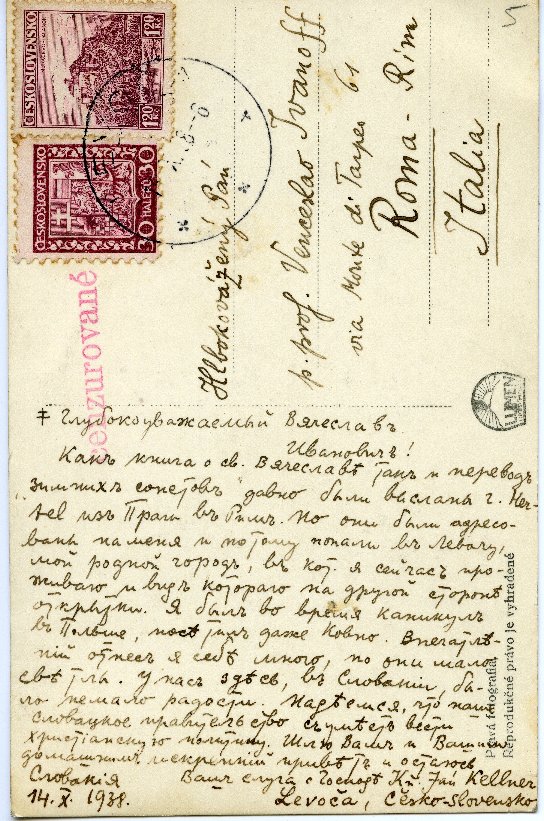 ČESKOSLOVENSKO
1.20
1.20
ČESKOSLOVENSKO
30 HALEŘŮ 30
cenzurované
Hlbokovážený Pán
p. prof. Venceslao Ivanoff
via Monte di Tarpeo 61
Roma - Rím
Italia
LUMEN
Pravá fotografia
Reprodukčné právo je vyhradené
‡ Глубокоуважаемый Вячеславъ
Ивановичъ!
Какъ книга о св. Вячеславѣ такъ и переводъ
"зимнихъ сонетовъ" давно были высланы г. Her-
tel изъ Праги въ Римъ. Но они были адресо-
ваны на меня и потому попали въ Левочу,
мой родной городъ, въ кот. я сейчасъ про-
живаю и видъ котораго на другой сторонѣ
открытки. Я былъ во время каникулъ
въ Польше, посѣтилъ даже Ковно. Впечатлѣ-
ній отнесъ я себѣ много, но они мало
свѣтлы. У насъ здѣсь, въ Словакии, бы-
ло немало радости. Надѣемся, что наше
словацкое правительство съумѣетъ вести
христіанскую политику. Шлю Вамъ и Вашимъ
домашнимъ искренній привѣтъ и остаюсь
Словакія Вашъ слуга о Господѣ Кн. Ján Kellner
14. X. 1938. Levoča, Česko-Slovensko